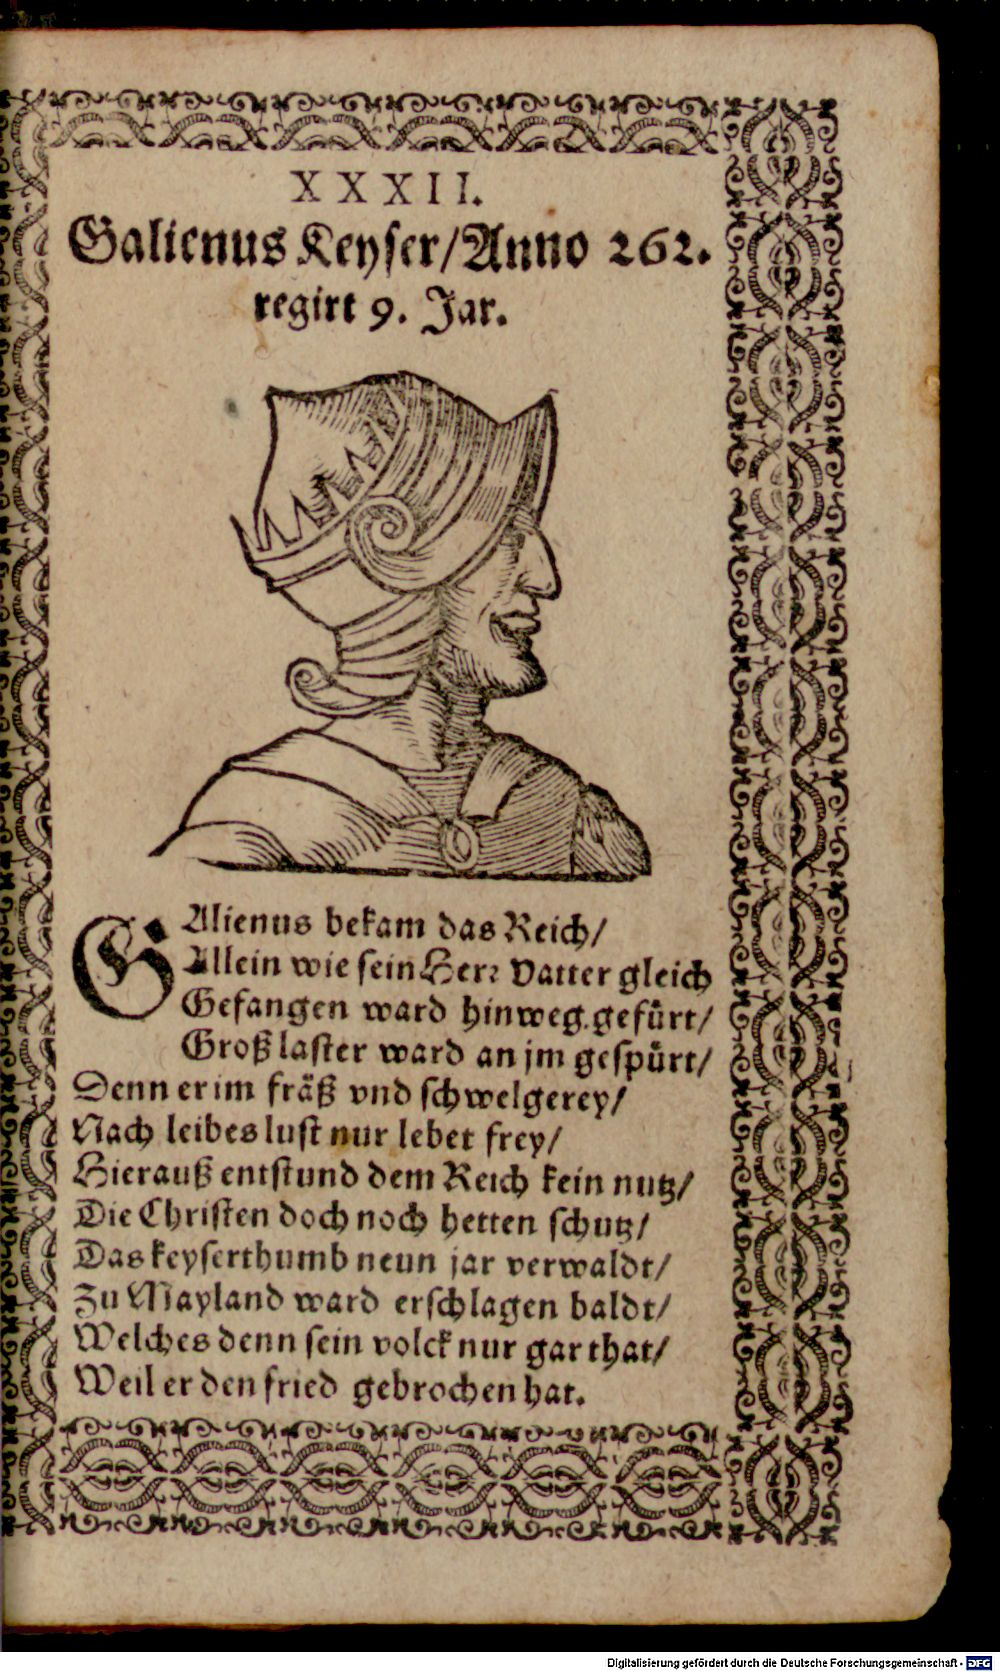 XXXII.
Galienus Keyser/Anno 262.
regirt 9. Jar.
GAlienus bekam das Reich/
Allein wie sein Herr Vatter gleich
Gefangen ward hinweg gefürt/
Groß laster ward an jm gespürt/
Denn er im fräß vnd schwelgerey/
Nach leibes lust nur lebet frey/
Hierauß entstund dem Reich kein nutz/
Die Christen doch noch hetten schutz/
Das keyserthumb neun jar verwaldt/
Zu Mayland ward erschlagen baldt/
Welches denn sein volck nur gar that/
Weil er den fried gebrochen hat.
Digitalisierung gefördert durch die Deutsche Forschungsgemeinschaft - DFG